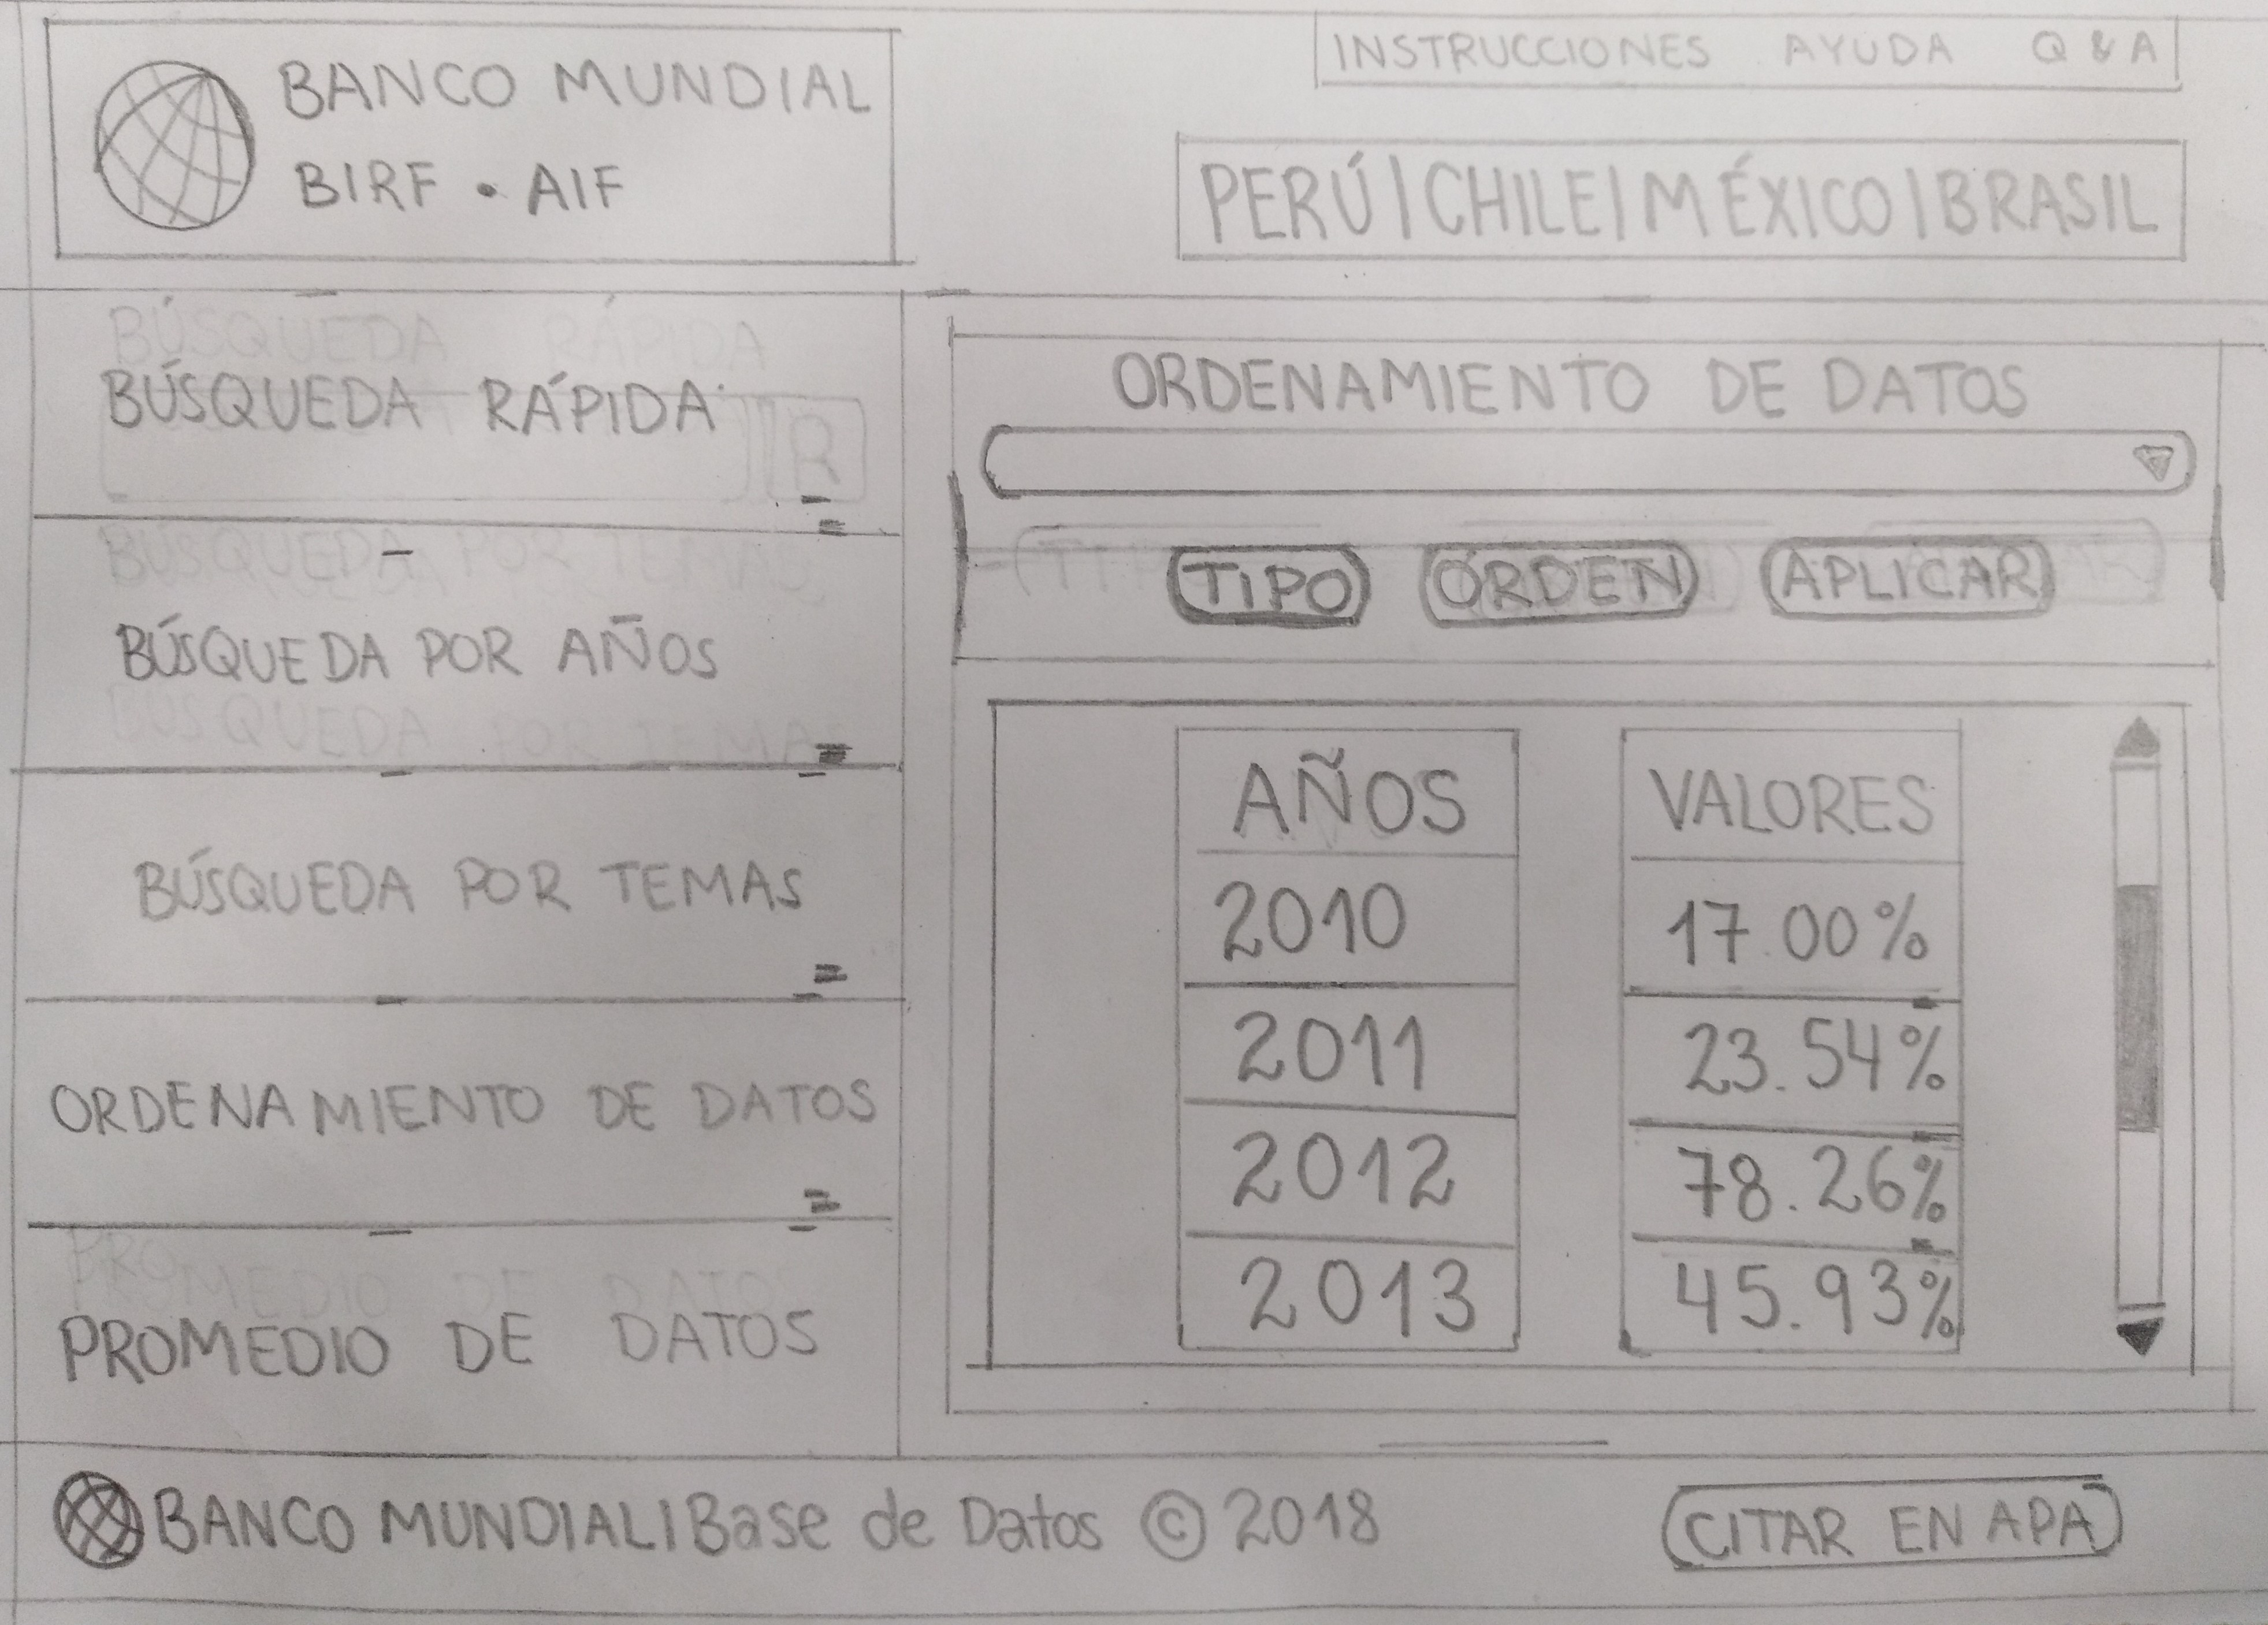 BANCO MUNDIAL
BIRF • AIF
INSTRUCCIONES AYUDA Q & A
PERÚ | CHILE | MÉXICO | BRASIL
BÚSQUEDA RÁPIDA
BÚSQUEDA RÁPIDA
IR
BÚSQUEDA POR TEMAS
BÚSQUEDA POR AÑOS
BUSQUEDA POR TEMA
BÚSQUEDA POR TEMAS
ORDENAMIENTO DE DATOS
PROMEDIO DE DATO
PROMEDIO DE DATOS
ORDENAMIENTO DE DATOS
TIPO ORDEN APLICAR
AÑOS VALORES
2010 17.00%
2011 23.54%
2012 78.26%
2013 45.93%
BANCO MUNDIAL | Base de Datos © 2018
CITAR EN APA